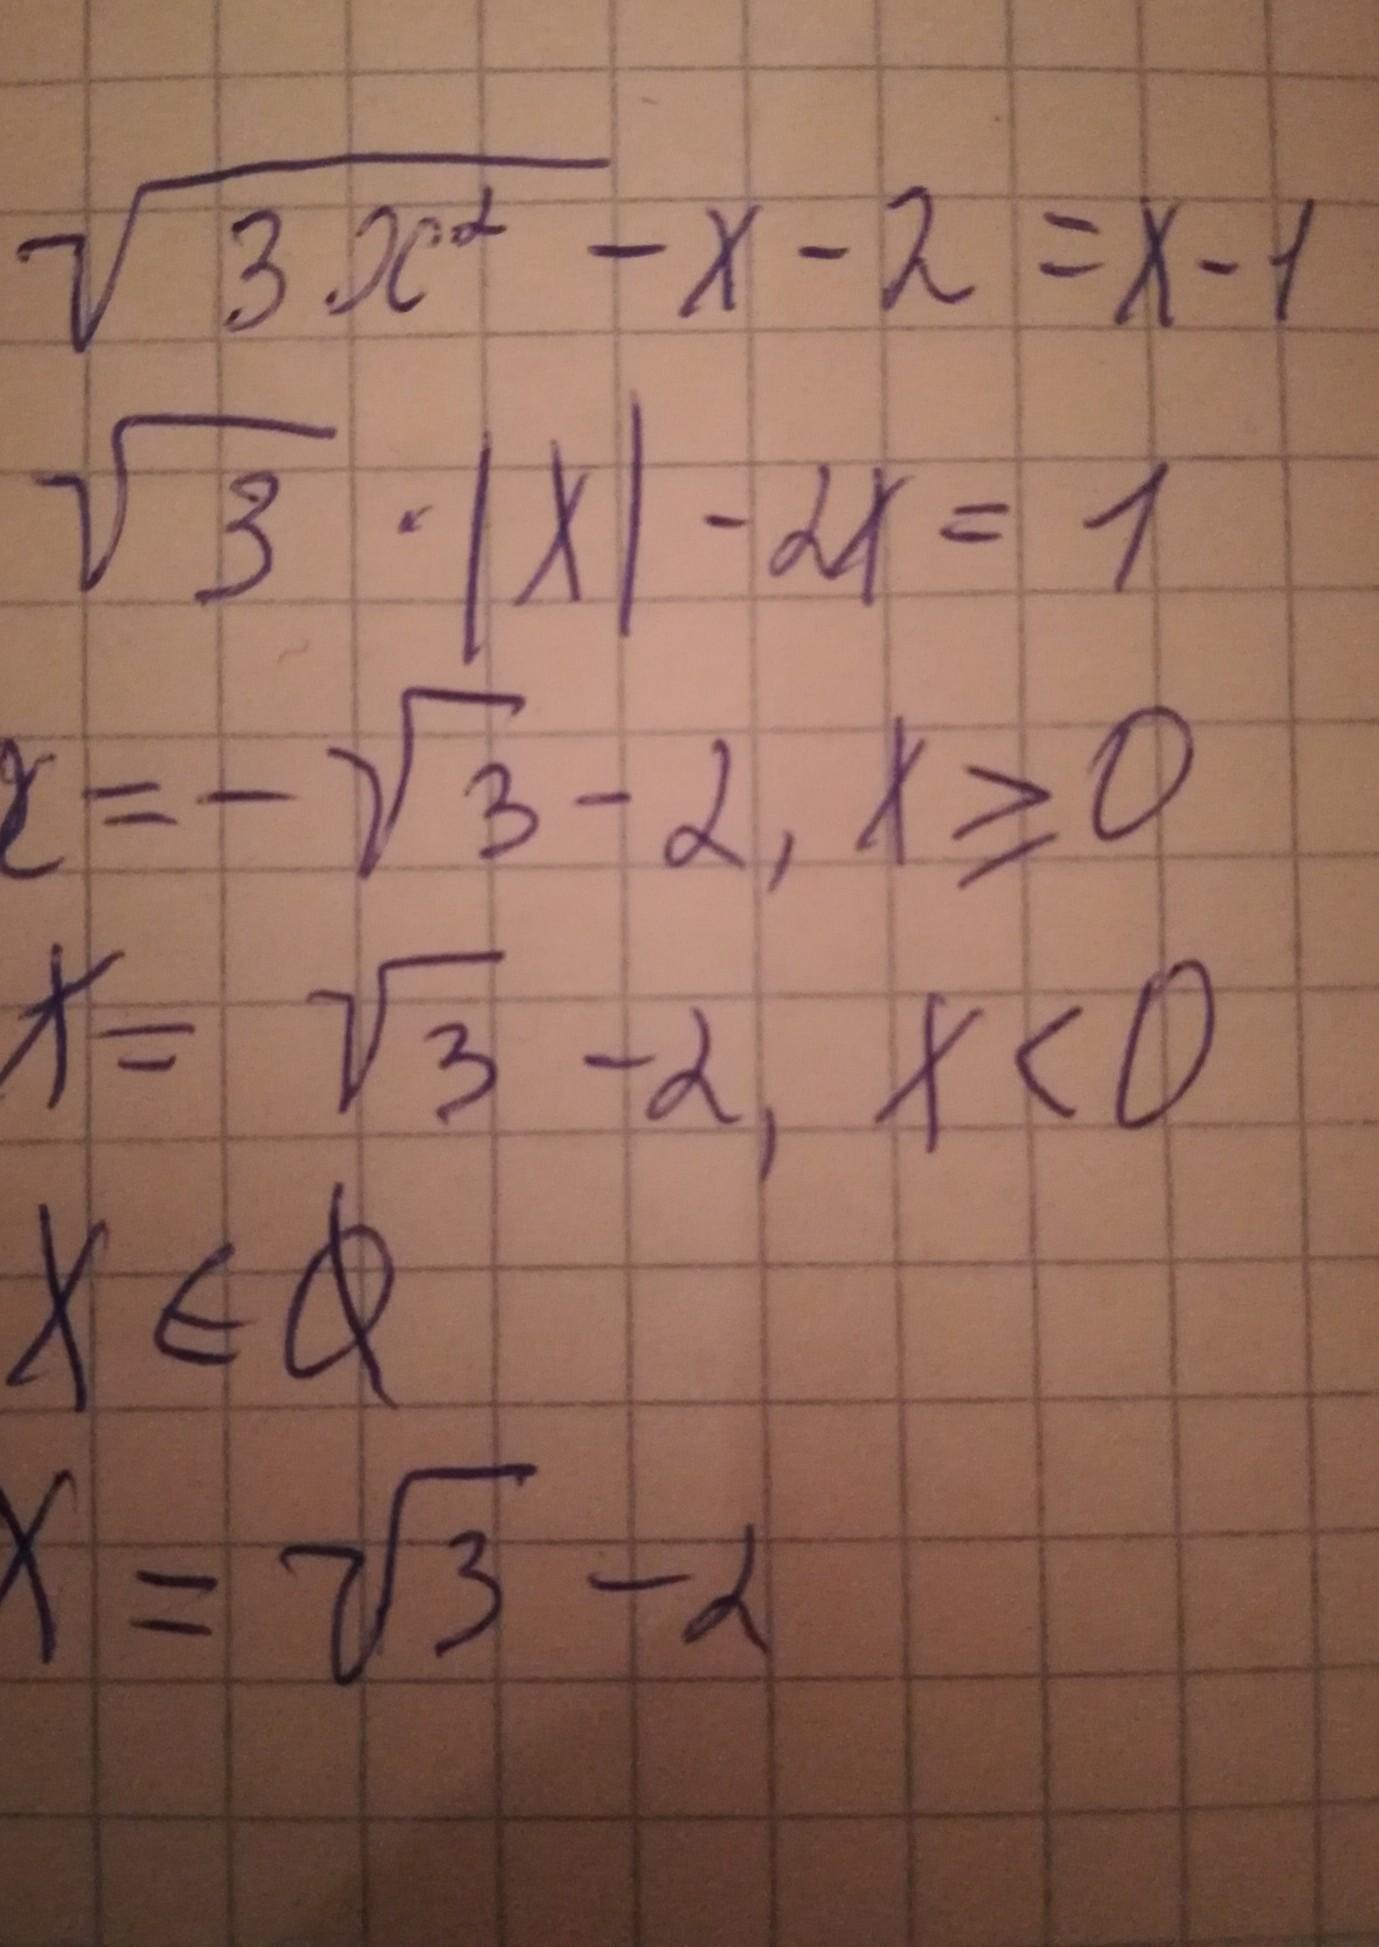 √3x² - x - 2 = x - 1
√3 · |x| - 2x = 1
x = -√3 - 2, x ≥ 0
x = √3 - 2, x < 0
x ∈ Q
x = √3 - 2